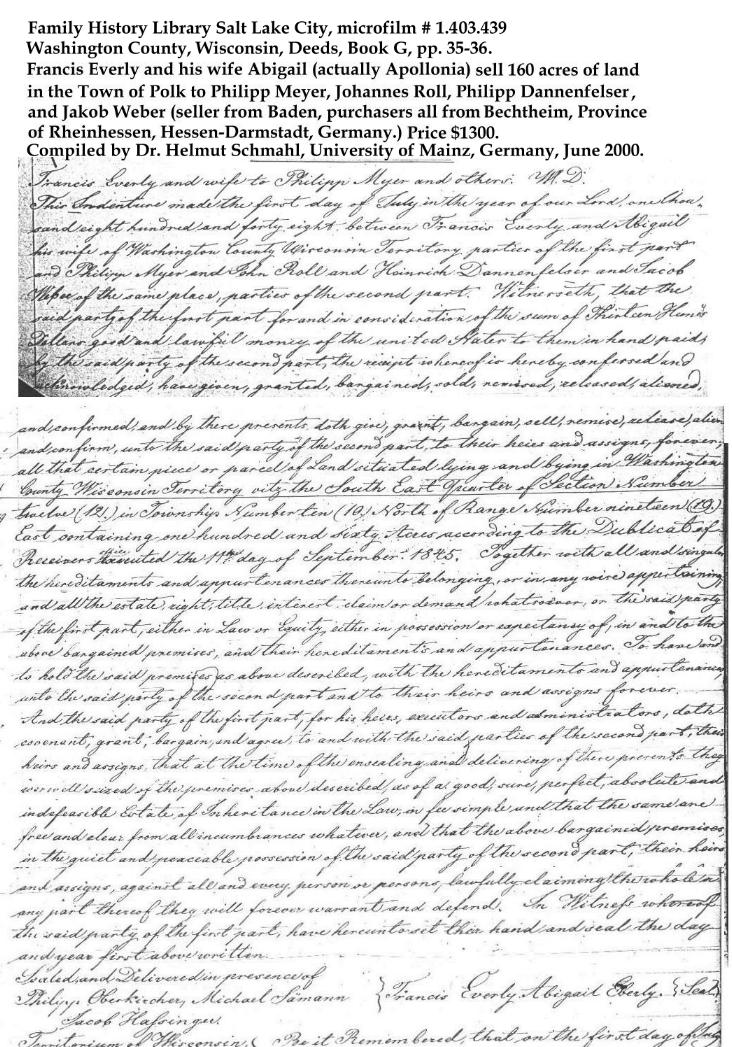 Family History Library Salt Lake City, microfilm # 1.403.439
Washington County, Wisconsin, Deeds, Book G, pp. 35-36.
Francis Everly and his wife Abigail (actually Apollonia) sell 160 acres of land
in the Town of Polk to Philipp Meyer, Johannes Roll, Philipp Dannenfelser,
and Jakob Weber (seller from Baden, purchasers all from Bechtheim, Province
of Rheinhessen, Hessen-Darmstadt, Germany.) Price $1300.
Compiled by Dr. Helmut Schmahl, University of Mainz, Germany, June 2000.
Francis Everly and wife to Philipp Myer and others. W.D.
This Indenture made the first day of July in the year of our Lord, one thou-
sand eight hundred and forty eight, between Francis Everly and Abigail
his wife of Washington County Wisconsin Territory parties of the first part
and Philipp Myer and John Roll and Heinrich Dannenfelser and Jacob
Weber of the same place, parties of the second part. Witnesseth, that the
said party of the first part for and in consideration of the sum of Thirteen Hun'd
Dollars good and lawful money of the united States to them in hand paid,
by the said party of the second part, the receipt whereof is hereby confessed and
acknowledged, have given, granted, bargained, sold, remised, released, aliened,
and confirmed, and by these presents doth give, grant, bargain, sell, remise, release, alien
and confirm, unto the said party of the second part, to their heirs and assigns, forever,
all that certain piece or parcel of Land situated lying and being in Washington
County Wisconsin Territory vitz the South East Quarter of Section Number
twelve (12.) in Township Number ten (10.) North of Range Number nineteen (19.)
East containing one hundred and sixty Acres according to the Dublicat of
Receivers executed the 11th day of September 1845. Together with all and singular
the hereditaments and appurtenances thereunto belonging, or in any wise appertaining,
and all the estate, right, title, interest, claim or demand whatsoever, or the said party
of the first part, either in Law or Equity, either in possession or expectancy of, in and to the
above bargained premises, and their hereditaments and appurtenances. To have and
to hold the said premises as above described, with the hereditaments and appurtenances,
unto the said party of the second part and to their heirs and assigns forever.
And the said party of the first part, for his heirs, executors and administrators, doth
covenant, grant, bargain, and agree, to and with the said parties of the second part, their
heirs and assigns, that at the time of the ensealing and delivering of these presents they
were well seized of the premises above described, as of a good, sure, perfect, absolute and
indefeasible Estate of Inheritance in the Law, in fee simple and that the same are
free and clear from all incumbrances whatever, and that the above bargained premises,
in the quiet and peaceable possession of the said party of the second part, their heirs
and assigns, against all and every person or persons, lawfully claiming the whole or
any part thereof they will forever warrant and defend. In Witness whereof
the said party of the first part, have hereunto set their hand and seal the day
and year first above written.
Sealed and Delivered in presence of
Philipp Oberkircher, Michael Sämann } Francis Everly Abigail Eberly. {Seal}
Jacob Hafsinger.
Territorium of Wisconsin. ( Be it Remembered, that on the first day of July